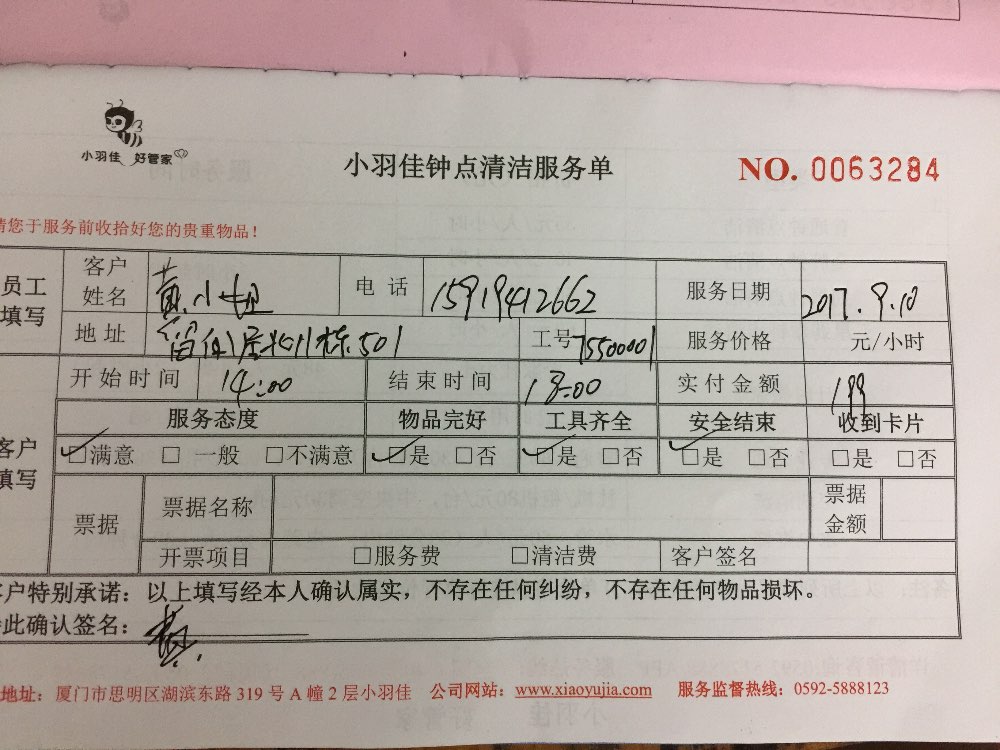 小羽佳 好管家
小羽佳钟点清洁服务单 NO. 0063284
请您于服务前收拾好您的贵重物品！
员工填写 客户姓名 黄小姐 电话 15919412662 服务日期 2017.9.10
地址 501 工号 7550001 服务价格 元/小时
开始时间 14:00 结束时间 18:00 实付金额 199
服务态度 物品完好 工具齐全 安全结束 收到卡片
客户填写 ☑满意 □一般 □不满意 ☑是 □否 ☑是 □否 ☑是 □否 □是 □否
票据 票据名称 票据金额
开票项目 □服务费 □清洁费 客户签名
客户特别承诺：以上填写经本人确认属实，不存在任何纠纷，不存在任何物品损坏。
特此确认签名：
地址：厦门市思明区湖滨东路 319 号 A 幢 2 层小羽佳 公司网站：www.xiaoyujia.com 服务监督热线：0592-5888123